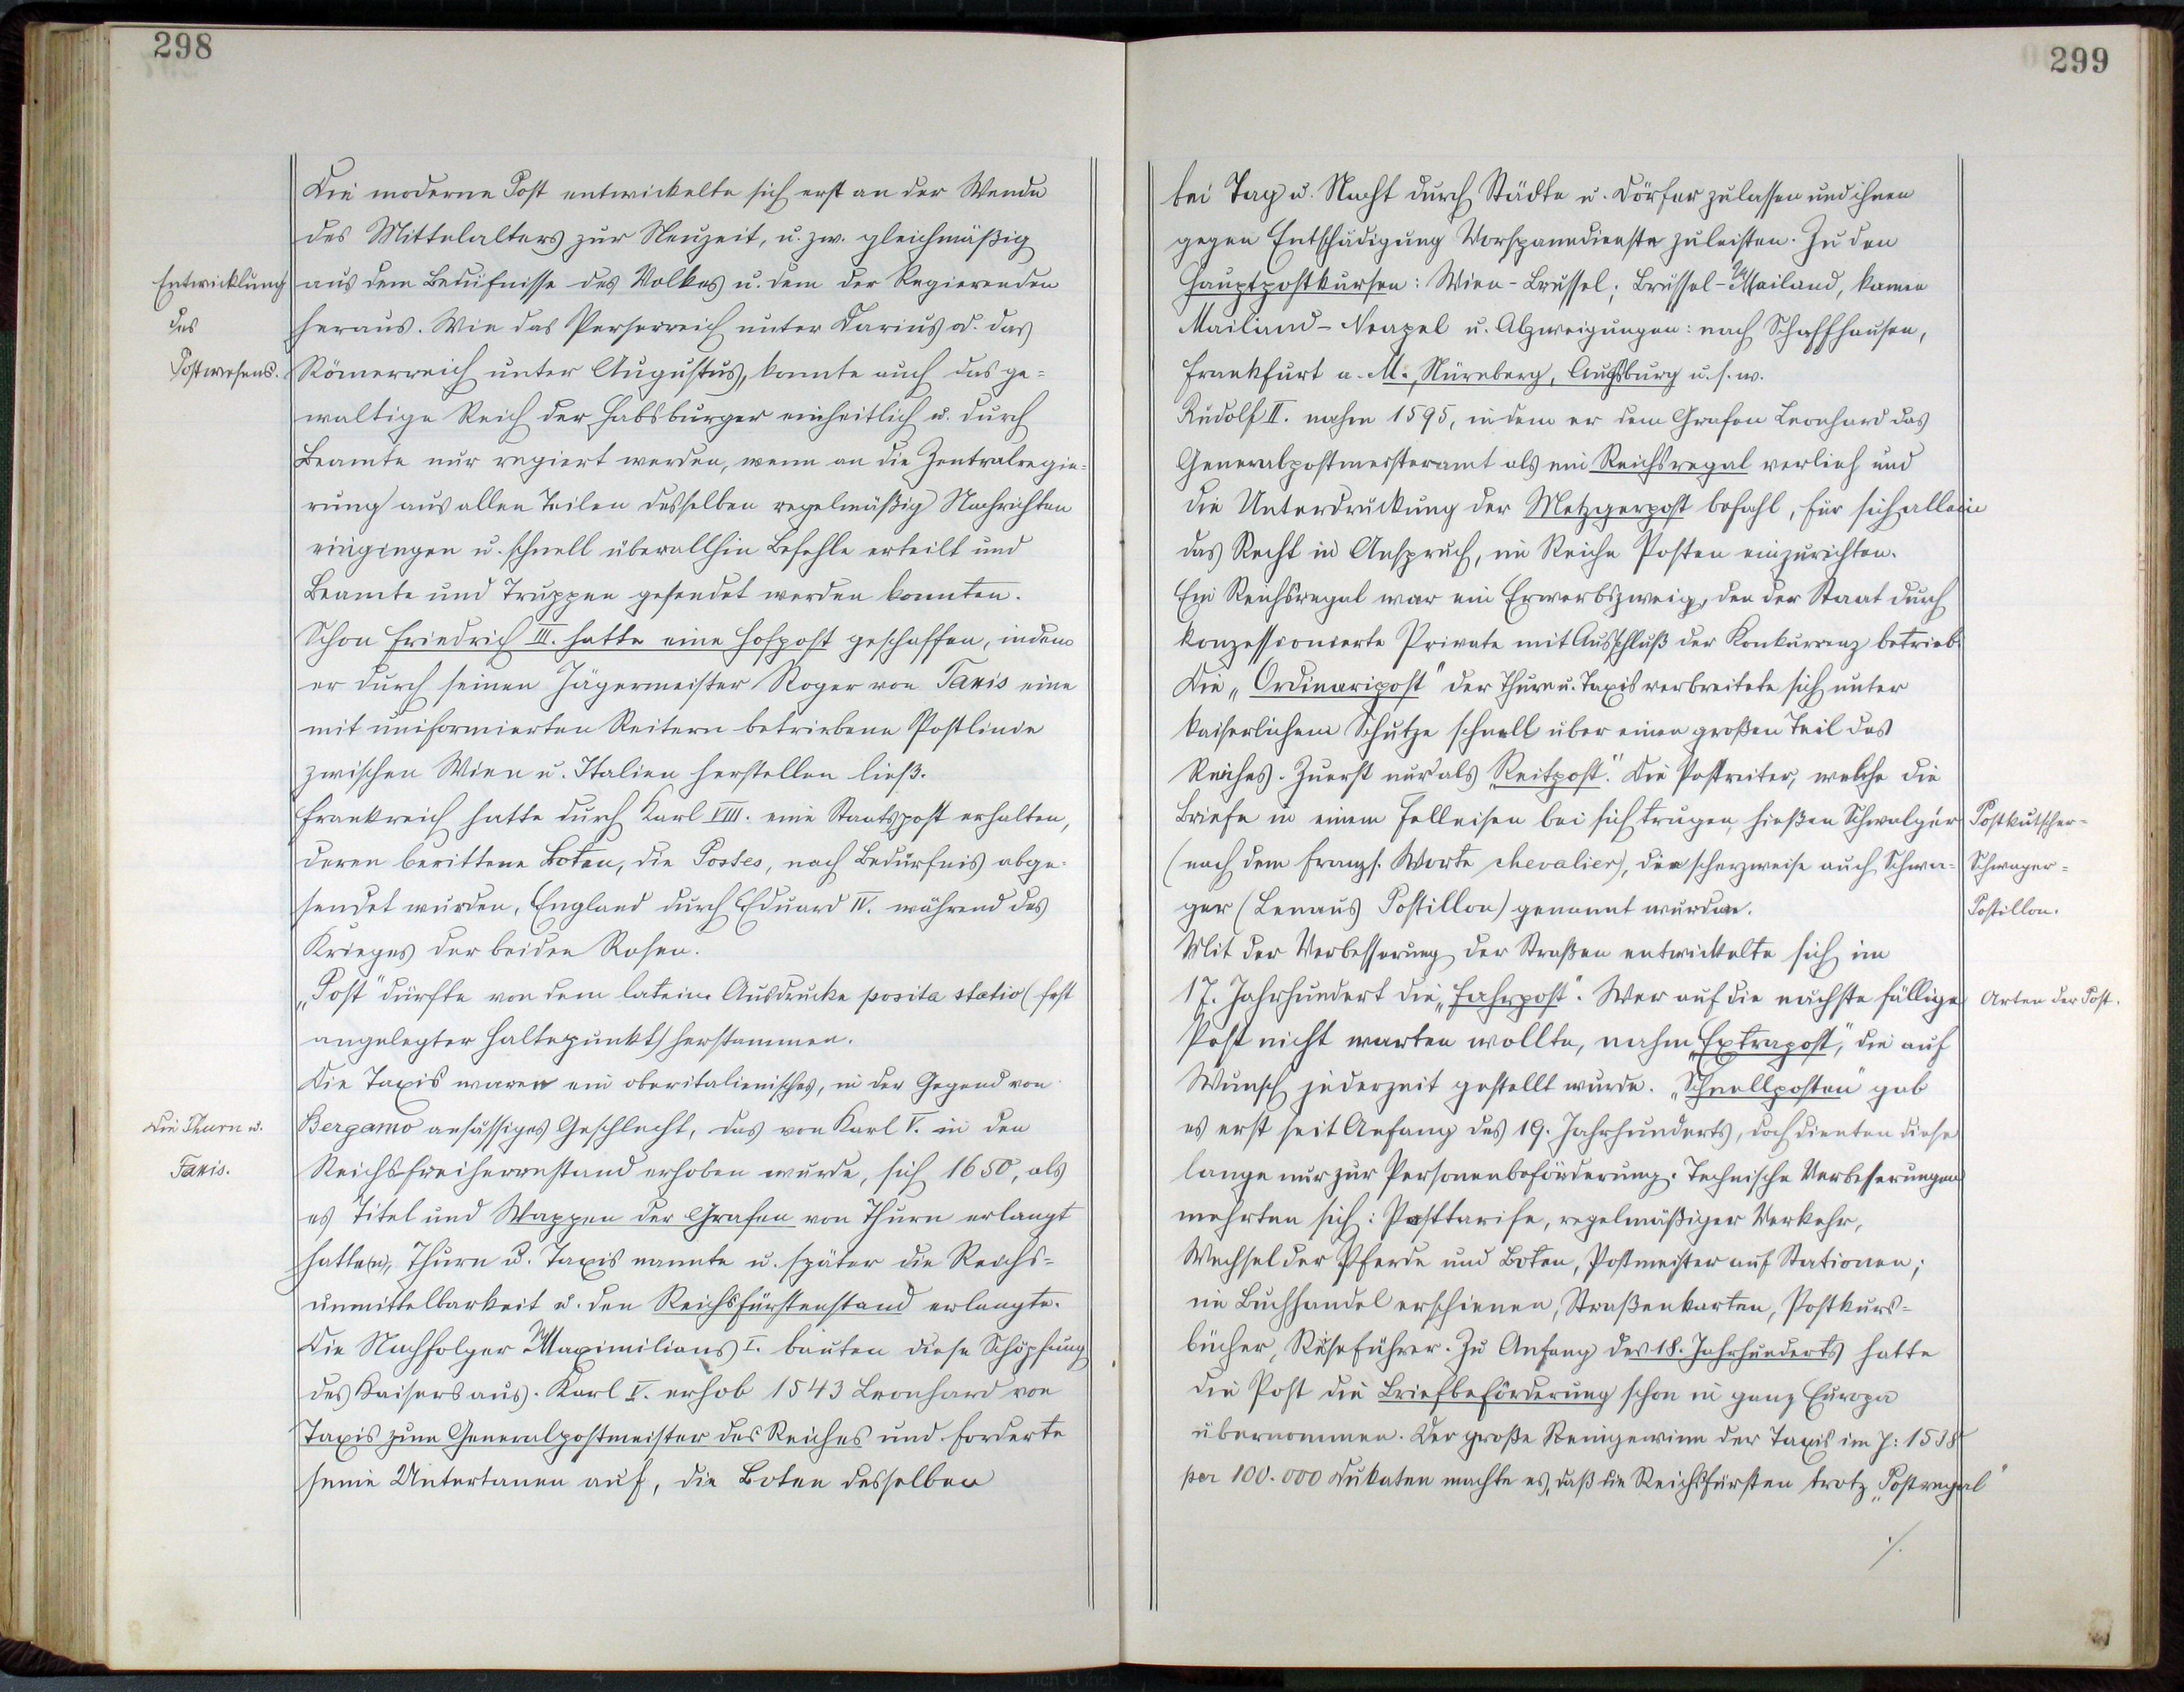 298
Die moderne Post entwickelte sich erst an der Wende
des Mittelalters zur Neuzeit, u. zw. gleichmäßig
Entwicklung
des
Postwesens.
aus dem Bedürfnisse des Volkes u. dem der Regierenden
heraus. Wie das Perserreich unter Darius od. das
Römerreich unter Augustus, konnte auch das ge=
waltige Reich der Habsburger einheitlich u. durch
Beamte nur regiert werden, wenn an die Zentralregie=
rung aus allen Teilen desselben regelmäßig Nachrichten
eingingen u. schnell überallhin Befehle erteilt und
Beamte und Truppen gesendet werden konnten.
Schon Friedrich III. hatte eine Hofpost geschaffen, indem
er durch seinen Jägermeister Roger von Taxis eine
mit uniformierten Reitern betriebene Postlinie
zwischen Wien u. Italien herstellen ließ.
Frankreich hatte durch Karl VIII. eine Staatspost erhalten,
deren berittene Boten, die Postes, nach Bedürfnis abge=
sendet wurden, England durch Eduard IV. während des
Krieges der beiden Rosen.
„Post" dürfte von dem latein. Ausdrucke posita statio (fest
angelegter Haltepunkt) herstammen.
Die Taxis waren ein oberitalienisches, in der Gegend von
Die Thurn u.
Taxis.
Bergamo ansässiges Geschlecht, das von Karl V. in den
Reichsfreiherrnstand erhoben wurde, sich 1650, als
es Titel und Wappen der Grafen von Thurn erlangt
hatte(n), Thurn u. Taxis nannte u. später die Reichs=
unmittelbarkeit u. den Reichsfürstenstand erlangte.
Die Nachfolger Maximilians I. bauten diese Schöpfung
des Kaisers aus. Karl V. erhob 1543 Leonhard von
Taxis zum Generalpostmeister des Reiches und forderte
seine Untertanen auf, die Boten desselben
299
bei Tag u. Nacht durch Städte u. Dörfer zulassen und ihnen
gegen Entschädigung Vorspanndienste zuleisten. Zu den
Hauptpostkursen: Wien-Brüssel; Brüssel-Mailand, kamen
Mailand-Neapel u. Abzweigungen: nach Schaffhausen,
Frankfurt a. M., Nürnberg, Augsburg u. s. w.
Rudolf II. nahm 1595, indem er dem Grafen Leonhard das
Generalpostmeisteramt als ein Reichsregal verlieh und
die Unterdrückung der Metzgerpost befahl, für sich allein
das Recht in Anspruch, im Reiche Posten einzurichten.
Ein Reichsregal war ein Erwerbszweig, den der Staat durch
konzessionierte Private mit Ausschluß der Konkurrenz betrieb.
Die „Ordinaripost" der Thurn u. Taxis verbreitete sich unter
kaiserlichem Schutze schnell über einen großen Teil des
Reiches. Zuerst nur als „Reitpost". Die Postreiter, welche die
Briefe in einem Felleisen bei sich trugen, hießen Schwalgér
(nach dem franzs. Worte chevalier), die scherzweise auch Schwa=
ger (Lenaus Postillon) genannt wurden.
Postkutscher=
Schwager=
Postillon.
Mit der Verbesserung der Straßen entwickelte sich im
17. Jahrhundert die „Fahrpost". Wer auf die nächste fällige
Arten der Post.
Post nicht warten wollte, nahm „Extrapost", die auf
Wunsch jederzeit gestellt wurde. „Schnellposten" gab
es erst seit Anfang des 19. Jahrhunderts, doch dienten diese
lange nur zur Personenbeförderung. Technische Verbesserungen
mehrten sich: Posttarife, regelmäßiger Verkehr,
Wechsel der Pferde und Boten, Postmeister auf Stationen;
im Buchhandel erschienen, Straßenkarten, Postkurs=
bücher, Reiseführer. Zu Anfang des 18. Jahrhunderts hatte
die Post die Briefbeförderung schon in ganz Europa
übernommen. Der große Reingewinn der Taxis im J: 1538
per 100.000 Dukaten machte es, daß die Reichsfürsten trotz „Postregal"
./.